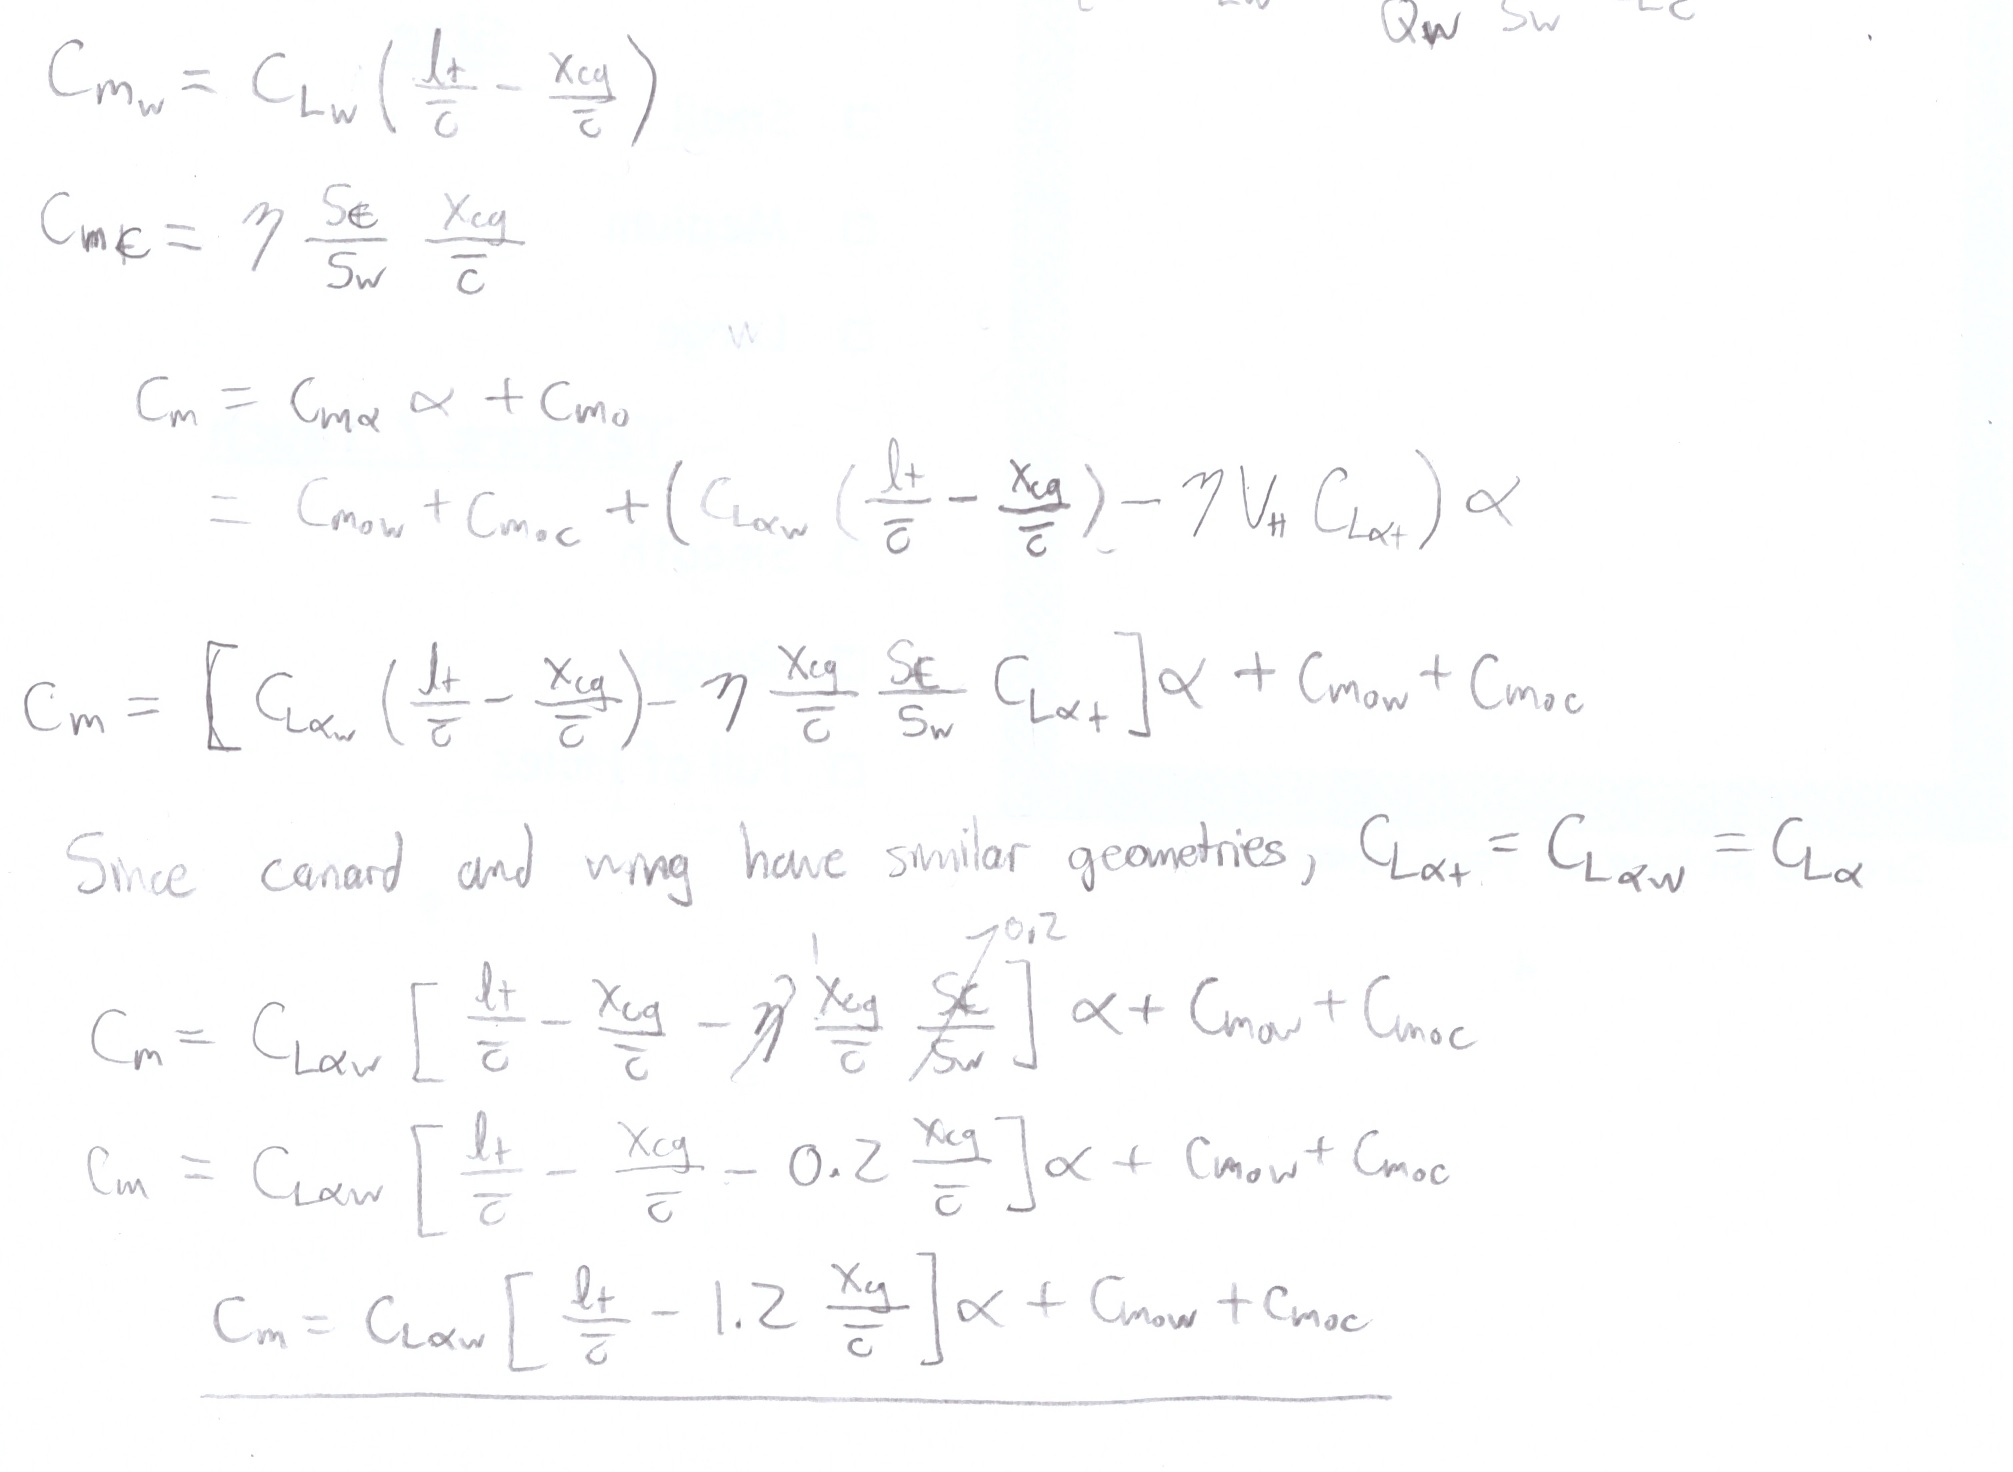 Qw Sw
Cmw = CLw ( lt/c̄ - xcg/c̄ )
Cmc = η Sc/Sw xcg/c̄
Cm = Cmα α + Cmo
= Cmow + Cmoc + ( CLαw ( lt/c̄ - xcg/c̄ ) - η VH CLαt ) α
Cm = [ CLαw ( lt/c̄ - xcg/c̄ ) - η xcg/c̄ Sc/Sw CLαt ] α + Cmow + Cmoc
Since canard and wing have similar geometries, CLαt = CLαw = CLα
1 0.2
Cm = CLαw [ lt/c̄ - xcg/c̄ - η xcg/c̄ Sc/Sw ] α + Cmow + Cmoc
Cm = CLαw [ lt/c̄ - xcg/c̄ - 0.2 xcg/c̄ ] α + Cmow + Cmoc
Cm = CLαw [ lt/c̄ - 1.2 xcg/c̄ ] α + Cmow + Cmoc